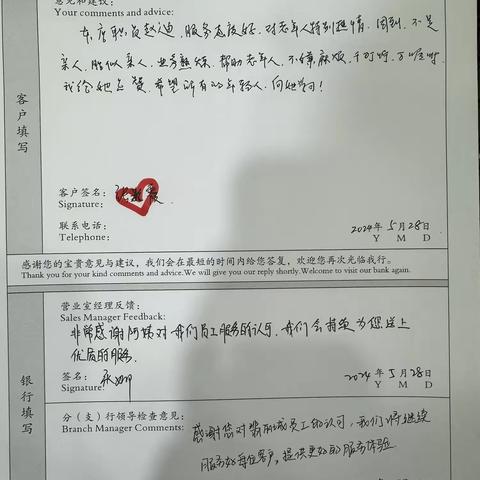 意见和建议：
Your comments and advice:
东度职员赵迪，服务态度好，对老年人特别热情，周到，不是
亲人，胜似亲人，业务熟练，帮助老年人，不嫌麻烦，千叮咛，万嘱咐
我给她点赞，希望所有的年轻人，向她学习！
客户填写
客户签名：
Signature:
联系电话：
Telephone:
2024年 5月28日
Y M D
感谢您的宝贵意见与建议，我们会在最短的时间内给您答复，欢迎您再次光临我行。
Thank you for your kind comments and advice.We will give you our reply shortly.Welcome to visit our bank again.
营业室经理反馈：
Sales Manager Feedback:
非常感谢阿姨对我们员工服务的认可，我们会持续为您送上
优质的服务。
签名：
Signature:
2024年 5月28日
Y M D
银行填写
分（支）行领导检查意见：
Branch Manager Comments:
感谢您对我们员工的认可，我们将继续
服务好每位客户，提供更好的服务体验